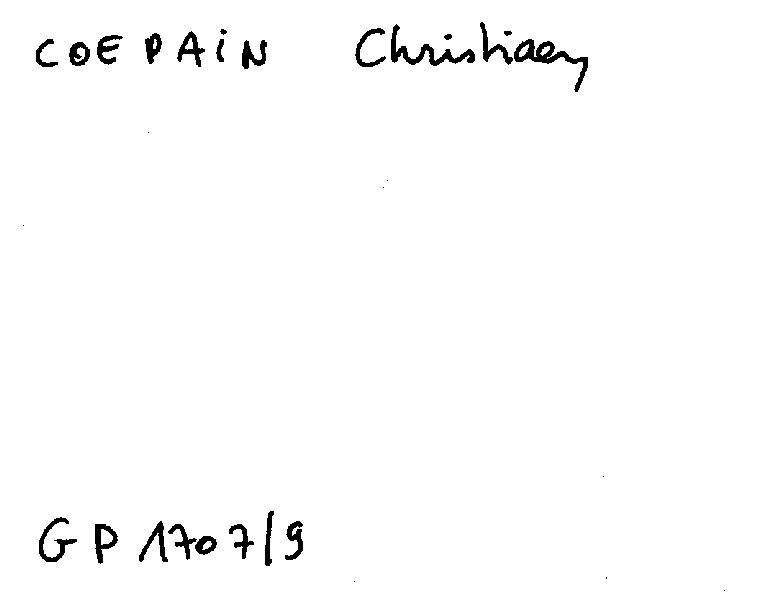 COEPAIN Christiaen
GP 1707/9